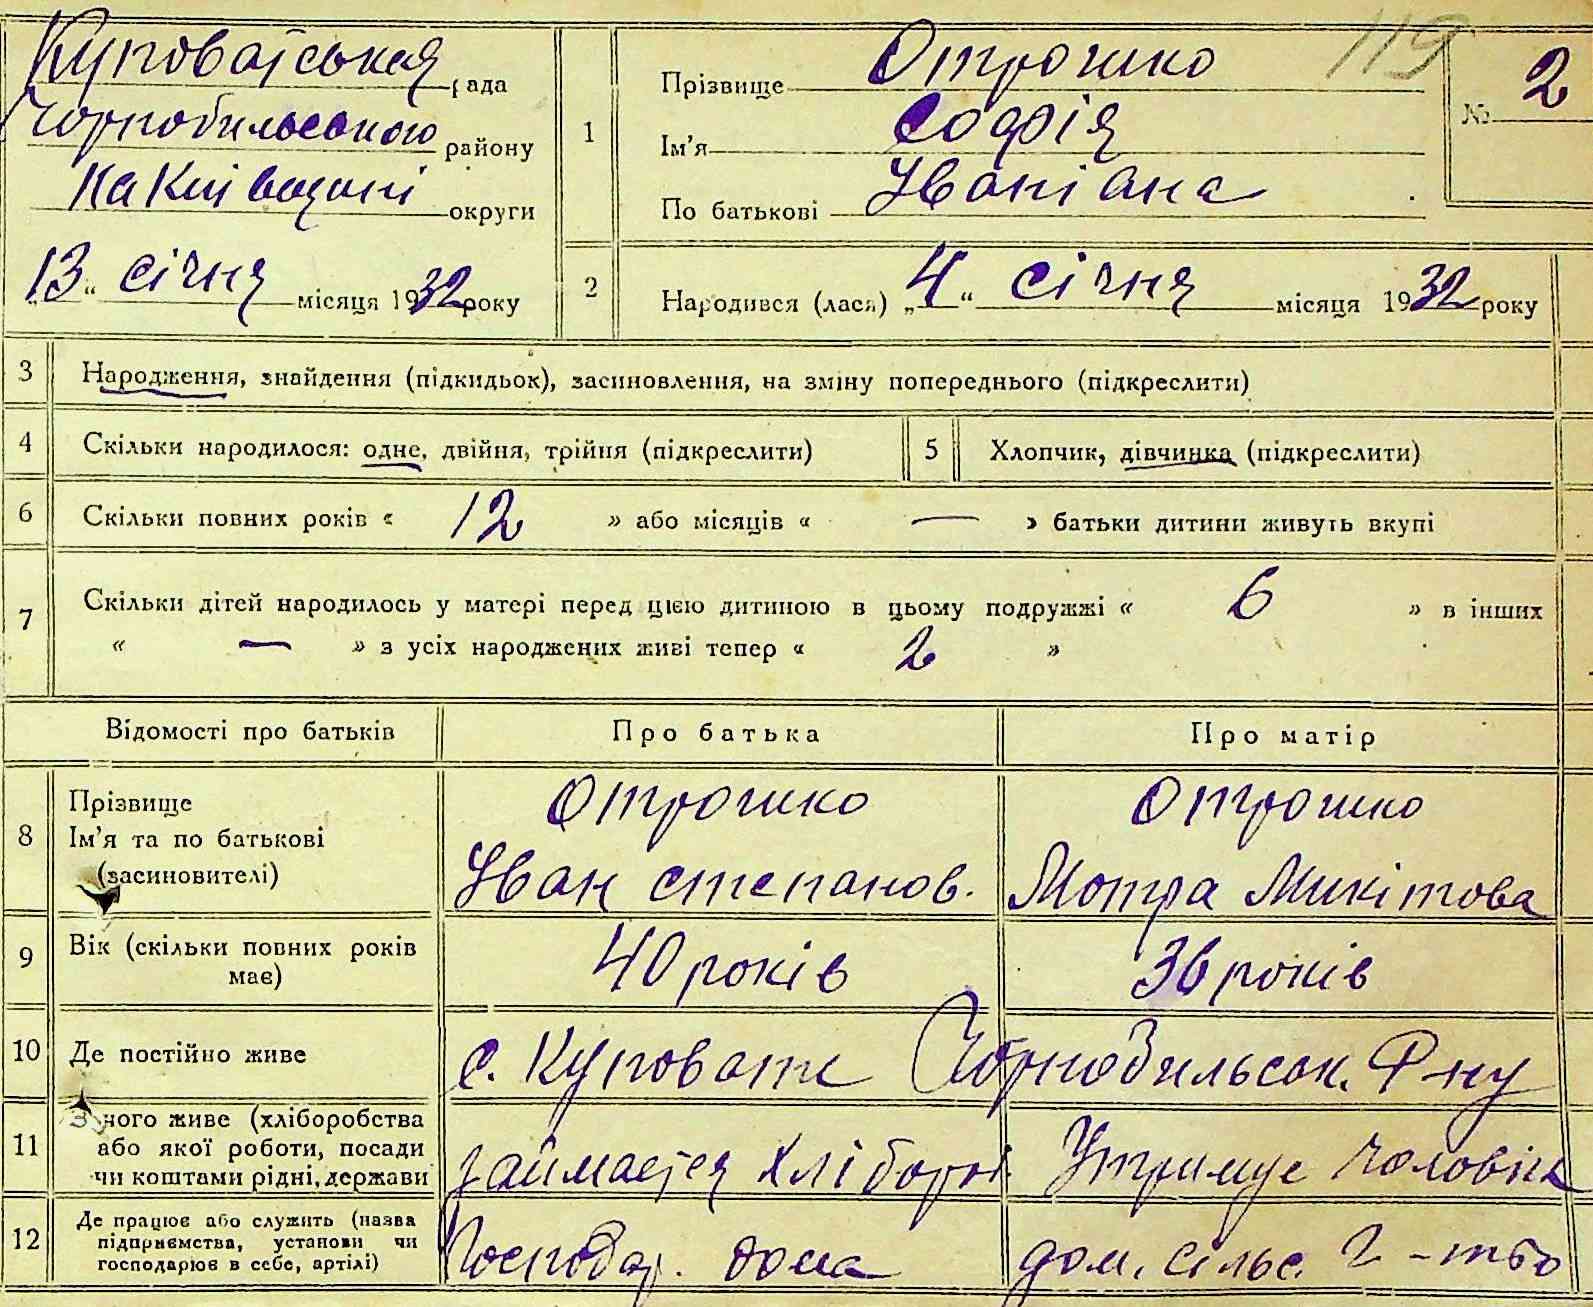 119
Куповатська рада
Чорнобильського району
на Київщині округи
„13“ січня місяця 1932 року
1
Прізвище Отрошко
Ім'я Софія
По батькові Іванівна
№ 2
2
Народився (лася) „4“ січня місяця 1932 року
3 Народження, знайдення (підкидьок), засиновлення, на зміну попереднього (підкреслити)
4 Скільки народилося: одне, двійня, трійня (підкреслити)
5 Хлопчик, дівчинка (підкреслити)
6 Скільки повних років « 12 » або місяців « — » батьки дитини живуть вкупі
7 Скільки дітей народилось у матері перед цією дитиною в цьому подружжі « 6 » в інших
« — » з усіх народжених живі тепер « 2 »
Відомості про батьків Про батька Про матір
8
Прізвище
Ім'я та по батькові
(засиновителі)
Отрошко
Іван Степанов.
Отрошко
Мотря Микітова
9
Вік (скільки повних років
має)
40 років
36 років
10 Де постійно живе с. Куповате Чорнобильськ. Р-ну
11
З чого живе (хліборобства
або якої роботи, посади
чи коштами рідні, держави
займається хлібороб
Утримує чоловік
12
Де працює або служить (назва
підприємства, установи чи
господарює в себе, артілі)
Господар. дома
дом. сільс. г-тво